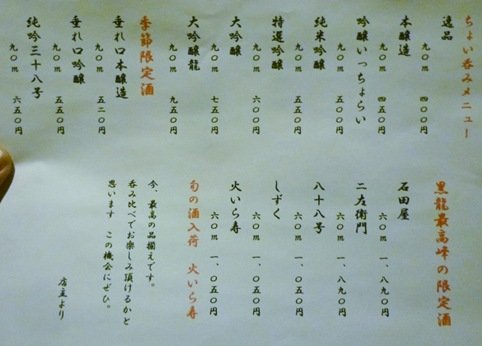 ちょい呑みメニュー
逸品
九〇㎖ 四〇〇円
本醸造
九〇㎖ 四五〇円
吟醸いっちょらい
九〇㎖ 五〇〇円
純米吟醸
九〇㎖ 五五〇円
特選吟醸
九〇㎖ 六〇〇円
大吟醸
九〇㎖ 七五〇円
大吟醸龍
九〇㎖ 九五〇円
季節限定酒
垂れ口本醸造
九〇㎖ 五二〇円
垂れ口吟醸
九〇㎖ 五五〇円
純吟三十八号
九〇㎖ 六五〇円
黒龍最高峰の限定酒
石田屋
六〇㎖ 一、八九〇円
二左衛門
六〇㎖ 一、八九〇円
八十八号
六〇㎖ 一、〇五〇円
しずく
六〇㎖ 一、〇五〇円
火いら寿
六〇㎖ 一、〇五〇円
旬の酒入荷 火いら寿
今、最高の品揃えです。
呑み比べてお楽しみ頂けるかと
思います この機会にぜひ。
店主より